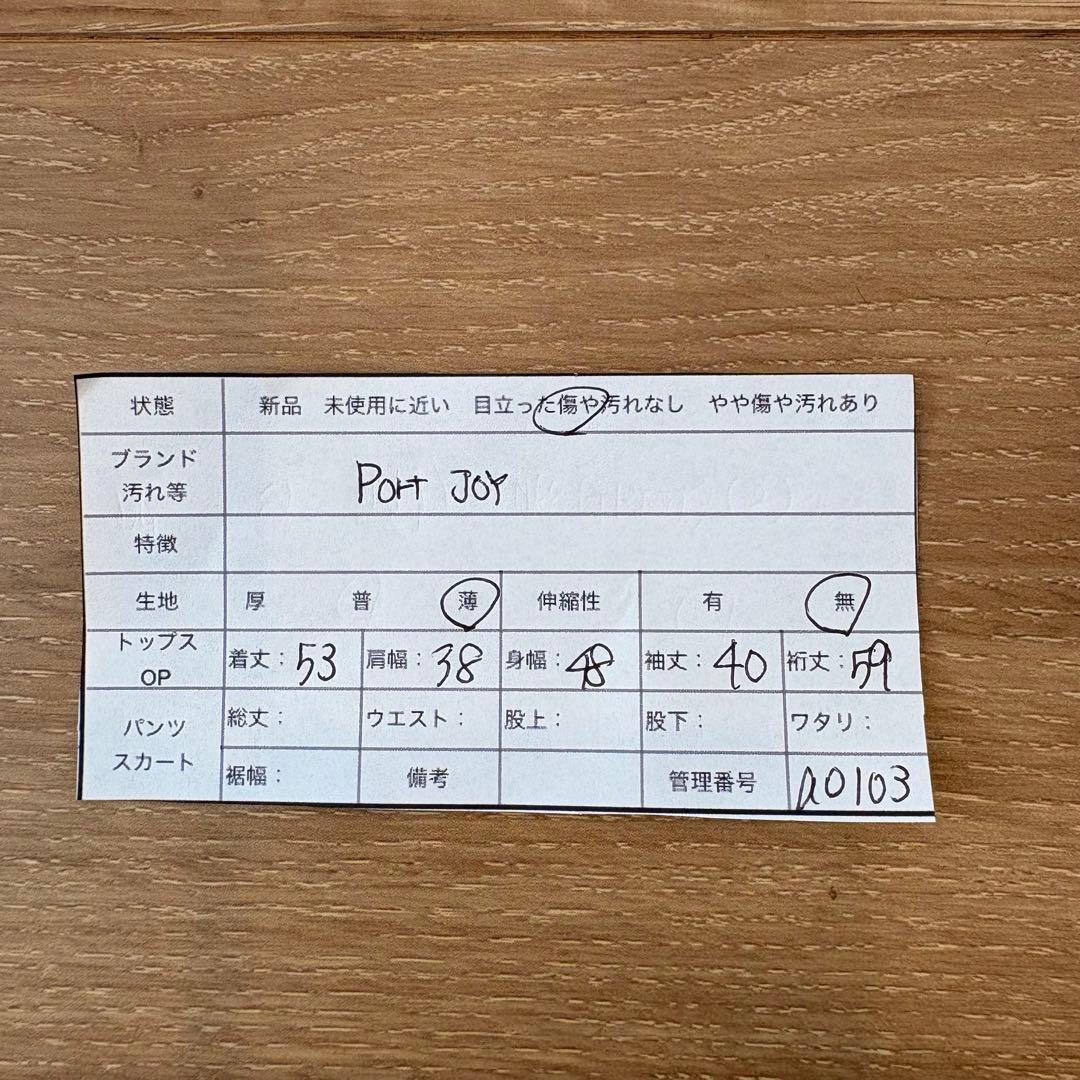 状態 新品 未使用に近い 目立った傷や汚れなし やや傷や汚れあり
ブランド
汚れ等
PORT JOY
特徴
生地 厚 普 薄 伸縮性 有 無
トップス
OP
着丈：53 肩幅：38 身幅：48 袖丈：40 裄丈：59
パンツ
スカート
総丈： ウエスト： 股上： 股下： ワタリ：
裾幅： 備考 管理番号 a0103